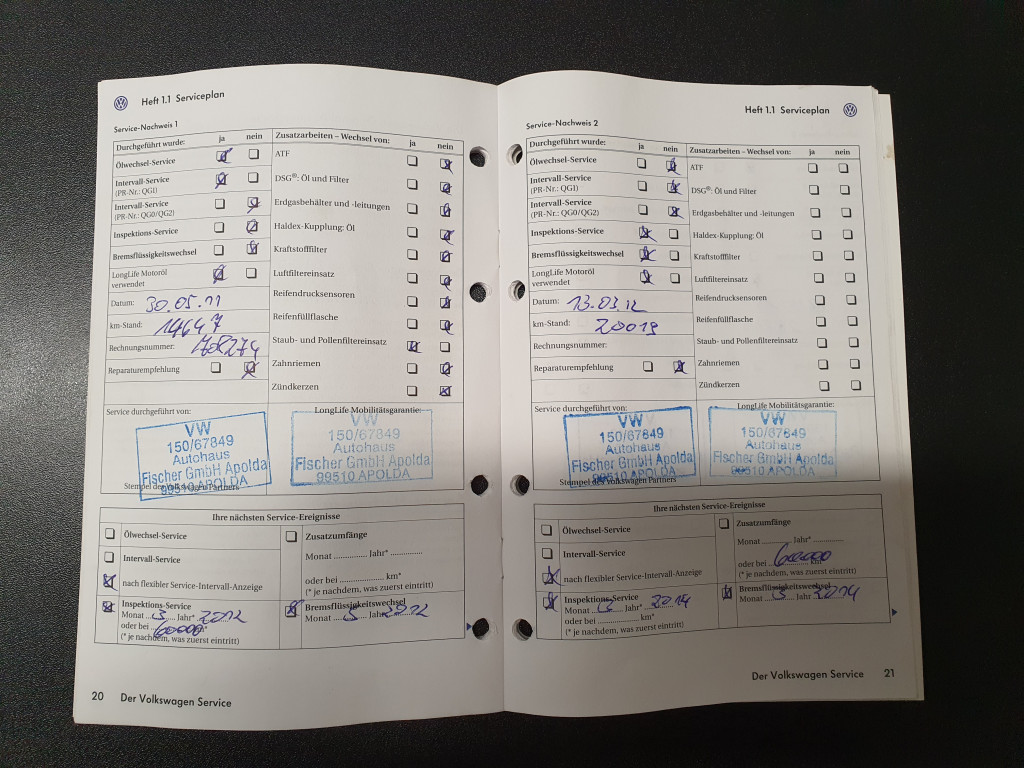 Heft 1.1 Serviceplan
Service-Nachweis 1
Durchgeführt wurde: ja nein
Ölwechsel-Service
Intervall-Service
(PR-Nr.: QG1)
Intervall-Service
(PR-Nr.: QG0/QG2)
Inspektions-Service
Bremsflüssigkeitswechsel
LongLife Motoröl
verwendet
Datum: 30.05.11
km-Stand: 14647
Rechnungsnummer:
Reparaturempfehlung
Zusatzarbeiten – Wechsel von: ja nein
ATF
DSG®: Öl und Filter
Erdgasbehälter und -leitungen
Haldex-Kupplung: Öl
Kraftstofffilter
Luftfiltereinsatz
Reifendrucksensoren
Reifenfüllflasche
Staub- und Pollenfiltereinsatz
Zahnriemen
Zündkerzen
Service durchgeführt von:
VW
150/67849
Autohaus
Fischer GmbH Apolda
99510 APOLDA
Stempel des Volkswagen Partners
LongLife Mobilitätsgarantie:
VW
150/67849
Autohaus
Fischer GmbH Apolda
99510 APOLDA
Ihre nächsten Service-Ereignisse
Ölwechsel-Service
Intervall-Service
nach flexibler Service-Intervall-Anzeige
Inspektions-Service
Monat ... 3 ... Jahr* 2012
oder bei 60000 km*
(* je nachdem, was zuerst eintritt)
Zusatzumfänge
Monat .............. Jahr* .............
oder bei .................. km*
(* je nachdem, was zuerst eintritt)
Bremsflüssigkeitswechsel
Monat ... Jahr 2012
20 Der Volkswagen Service
Heft 1.1 Serviceplan
Service-Nachweis 2
Durchgeführt wurde: ja nein
Ölwechsel-Service
Intervall-Service
(PR-Nr.: QG1)
Intervall-Service
(PR-Nr.: QG0/QG2)
Inspektions-Service
Bremsflüssigkeitswechsel
LongLife Motoröl
verwendet
Datum: 13.03.12
km-Stand: 20019
Rechnungsnummer:
Reparaturempfehlung
Zusatzarbeiten – Wechsel von: ja nein
ATF
DSG®: Öl und Filter
Erdgasbehälter und -leitungen
Haldex-Kupplung: Öl
Kraftstofffilter
Luftfiltereinsatz
Reifendrucksensoren
Reifenfüllflasche
Staub- und Pollenfiltereinsatz
Zahnriemen
Zündkerzen
Service durchgeführt von:
VW
150/67849
Autohaus
Fischer GmbH Apolda
99510 APOLDA
Stempel des Volkswagen Partners
LongLife Mobilitätsgarantie:
VW
150/67849
Autohaus
Fischer GmbH Apolda
99510 APOLDA
Ihre nächsten Service-Ereignisse
Ölwechsel-Service
Intervall-Service
nach flexibler Service-Intervall-Anzeige
Inspektions-Service
Monat ... 3 ... Jahr* 2014
oder bei .................. km*
(* je nachdem, was zuerst eintritt)
Zusatzumfänge
Monat .............. Jahr* .............
oder bei 60000 km*
(* je nachdem, was zuerst eintritt)
Bremsflüssigkeitswechsel
Monat ... 3 ... Jahr 2014
Der Volkswagen Service 21